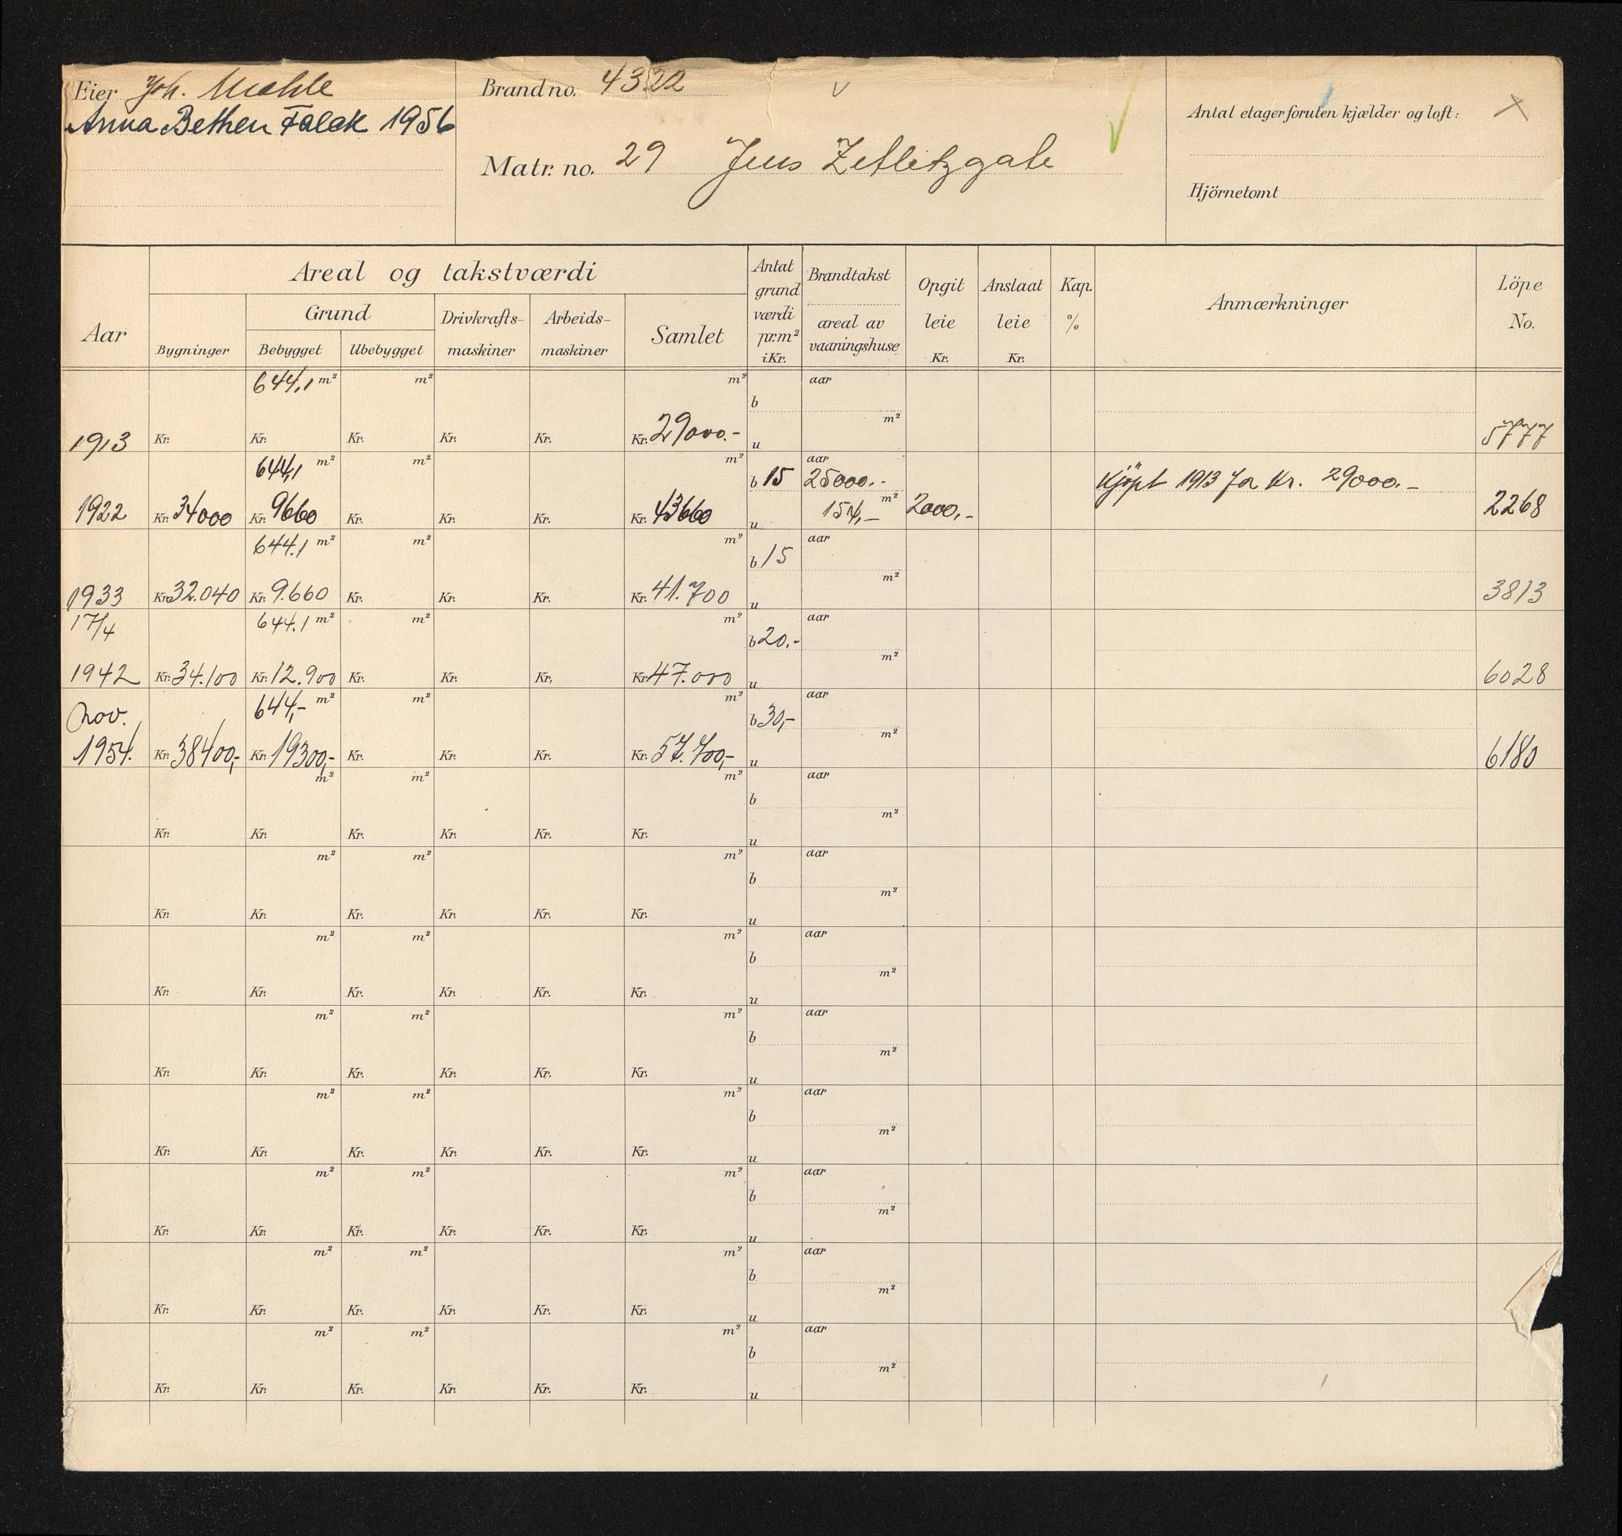 Eier Joh. Mæhle
Anna Bethen Falck 1956
Brand no. 4322
Matr. no. 29 Jens Zetlitzgate
Antal etager foruten kjælder og loft: ×
Hjörnetomt
Aar
Areal og takstværdi
Bygninger
Grund
Bebygget
Ubebygget
Drivkrafts-
maskiner
Arbeids-
maskiner
Samlet
Antat
grund
værdi
pr.m²
i Kr.
Brandtakst
areal av
vaaningshuse
Opgit
leie
Kr.
Anslaat
leie
Kr.
Kap.
%
Anmærkninger
Löpe
No.
644,1 m² m² m² aar
b
m²
1913 Kr. Kr. Kr. Kr. Kr. Kr. 29000.- u 5777
644,1 m² m² m² aar
b 15 25000.- Kjøpt 1913 for Kr. 29000.-
m²
1922 Kr. 34000 Kr. 9660 Kr. Kr. Kr. Kr. 43660 u 154,- 2000,- 2268
644.1 m² m² m² aar
b 15
m²
1933 Kr. 32.040 Kr. 9.660 Kr. Kr. Kr. Kr. 41.700 u 3813
17/4 644.1 m² m² m² aar
b 20,-
m²
1942 Kr. 34.100 Kr. 12.900 Kr. Kr. Kr. Kr. 47.000 u 6028
Nov. 644,- m² m² m² aar
b 30,-
m²
1954. Kr. 38400,- Kr. 19300,- Kr. Kr. Kr. Kr. 57.700,- u 6180
m² m² m² aar
b
m²
Kr. Kr. Kr. Kr. Kr. Kr. u
m² m² m² aar
b
m²
Kr. Kr. Kr. Kr. Kr. Kr. u
m² m² m² aar
b
m²
Kr. Kr. Kr. Kr. Kr. Kr. u
m² m² m² aar
b
m²
Kr. Kr. Kr. Kr. Kr. Kr. u
m² m² m² aar
b
m²
Kr. Kr. Kr. Kr. Kr. Kr. u
m² m² m² aar
b
m²
Kr. Kr. Kr. Kr. Kr. Kr. u
m² m² m² aar
b
m²
Kr. Kr. Kr. Kr. Kr. Kr. u
m² m² m² aar
b
m²
Kr. Kr. Kr. Kr. Kr. Kr. u